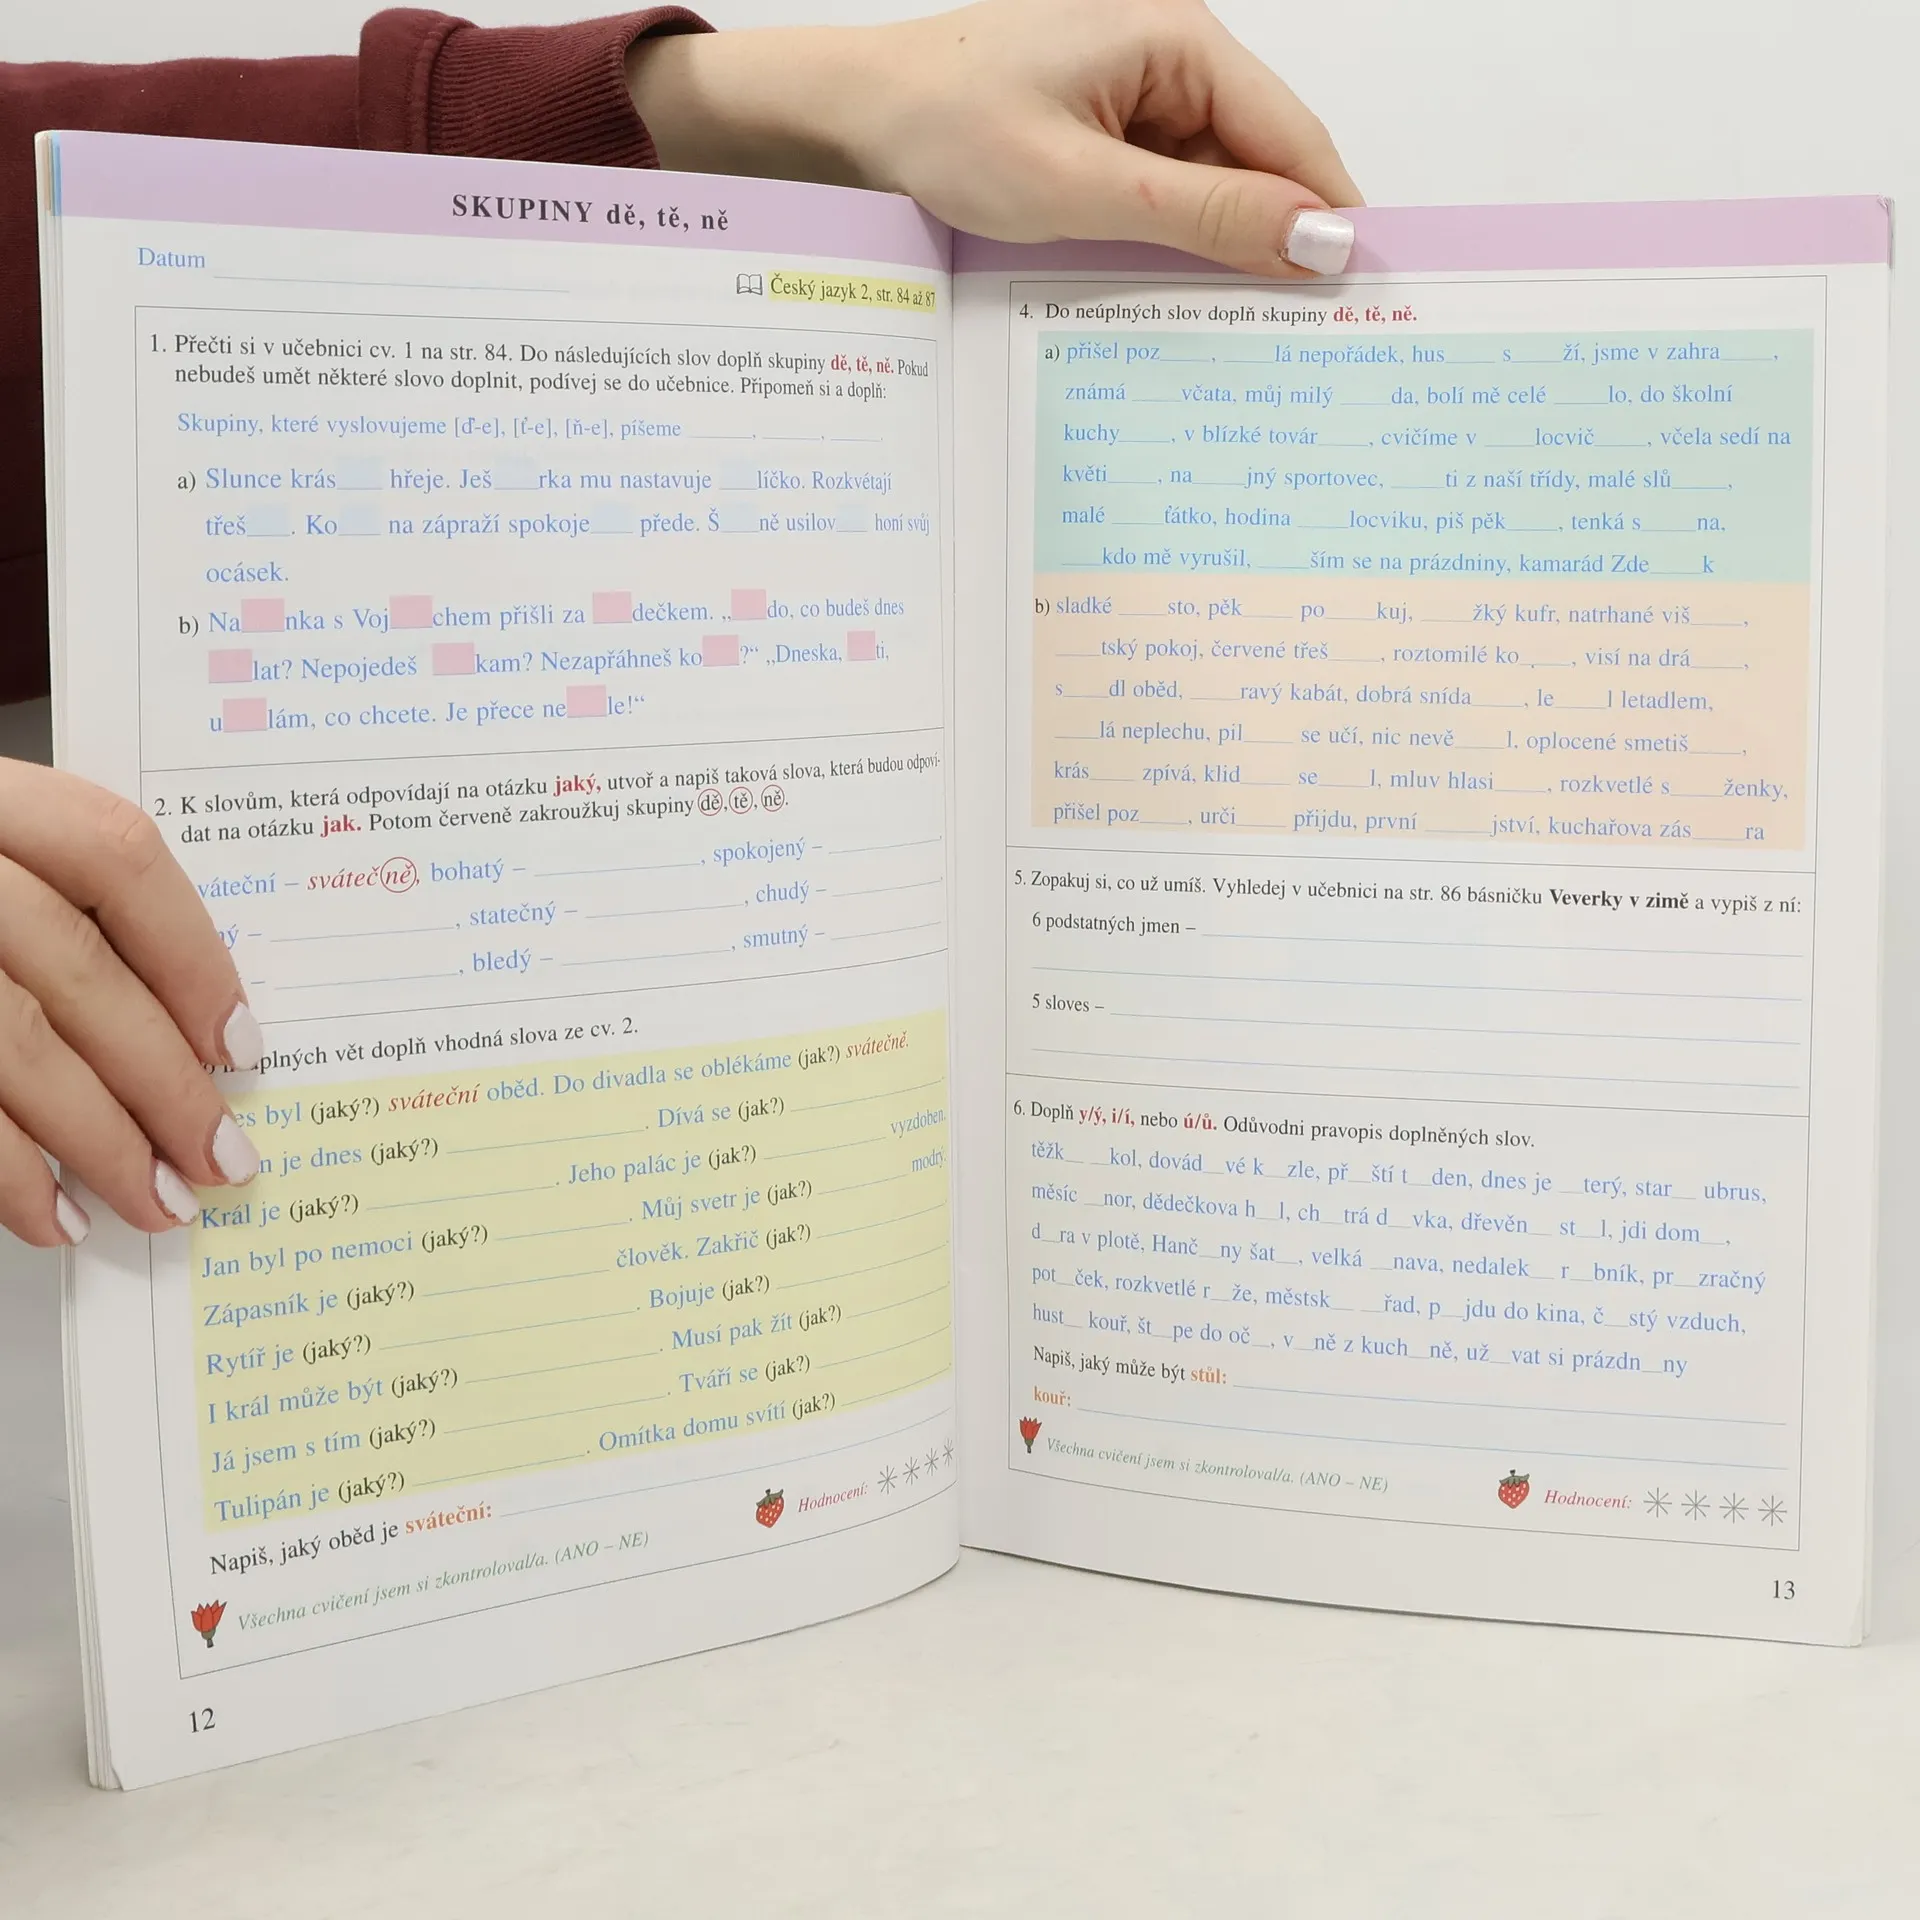 SKUPINY dě, tě, ně
Datum
Český jazyk 2, str. 84 až 87
1. Přečti si v učebnici cv. 1 na str. 84. Do následujících slov doplň skupiny dě, tě, ně. Pokud
nebudeš umět některé slovo doplnit, podívej se do učebnice. Připomeň si a doplň:
Skupiny, které vyslovujeme [ď-e], [ť-e], [ň-e], píšeme ____, ____, ____.
a) Slunce krás____ hřeje. Ješ____rka mu nastavuje ____líčko. Rozkvétají
třeš____. Ko____ na zápraží spokoje____ přede. Š____ně usilov____ honí svůj
ocásek.
b) Na____nka s Voj____chem přišli za ____dečkem. „____do, co budeš dnes
____lat? Nepojedeš ____kam? Nezapřáhneš ko____?“ „Dneska, ____ti,
u____lám, co chcete. Je přece ne____le!“
2. K slovům, která odpovídají na otázku jaký, utvoř a napiš taková slova, která budou odpoví-
dat na otázku jak. Potom červeně zakroužkuj skupiny dě, tě, ně.
váteční – svátečně, bohatý – ____, spokojený – ____,
ý – ____, statečný – ____, chudý – ____,
– ____, bledý – ____, smutný – ____
plných vět doplň vhodná slova ze cv. 2.
es byl (jaký?) sváteční oběd. Do divadla se oblékáme (jak?) svátečně.
n je dnes (jaký?) ____. Dívá se (jak?) ____.
Král je (jaký?) ____. Jeho palác je (jak?) ____ vyzdoben.
Jan byl po nemoci (jaký?) ____. Můj svetr je (jak?) ____ modrý.
Zápasník je (jaký?) ____ člověk. Zakřič (jak?) ____.
Rytíř je (jaký?) ____. Bojuje (jak?) ____.
I král může být (jaký?) ____. Musí pak žít (jak?) ____.
Já jsem s tím (jaký?) ____. Tváří se (jak?) ____.
Tulipán je (jaký?) ____. Omítka domu svítí (jak?) ____.
Napiš, jaký oběd je sváteční:
Všechna cvičení jsem si zkontroloval/a. (ANO – NE)
Hodnocení:
12
4. Do neúplných slov doplň skupiny dě, tě, ně.
a) přišel poz____, ____lá nepořádek, hus____ s____ží, jsme v zahra____,
známá ____včata, můj milý ____da, bolí mě celé ____lo, do školní
kuchy____, v blízké továr____, cvičíme v ____locvič____, včela sedí na
květi____, na____jný sportovec, ____ti z naší třídy, malé slů____,
malé ____ťátko, hodina ____locviku, piš pěk____, tenká s____na,
____kdo mě vyrušil, ____ším se na prázdniny, kamarád Zde____k
b) sladké ____sto, pěk____ po____kuj, ____žký kufr, natrhané viš____,
____tský pokoj, červené třeš____, roztomilé ko____, visí na drá____,
s____dl oběd, ____ravý kabát, dobrá snída____, le____l letadlem,
____lá neplechu, pil____ se učí, nic nevě____l, oplocené smetiš____,
krás____ zpívá, klid____ se____l, mluv hlasi____, rozkvetlé s____ženky,
přišel poz____, urči____ přijdu, první ____jství, kuchařova zás____ra
5. Zopakuj si, co už umíš. Vyhledej v učebnici na str. 86 básničku Veverky v zimě a vypiš z ní:
6 podstatných jmen –
5 sloves –
6. Doplň y/ý, i/í, nebo ú/ů. Odůvodni pravopis doplněných slov.
těžk__ __kol, dovád__vé k__zle, př__ští t__den, dnes je __terý, star__ ubrus,
měsíc __nor, dědečkova h__l, ch__trá d__vka, dřevěn__ st__l, jdi dom__,
d__ra v plotě, Hanč__ny šat__, velká __nava, nedalek__ r__bník, pr__zračný
pot__ček, rozkvetlé r__že, městsk__ __řad, p__jdu do kina, č__stý vzduch,
hust__ kouř, št__pe do oč__, v__ně z kuch__ně, už__vat si prázdn__ny
Napiš, jaký může být stůl:
kouř:
Všechna cvičení jsem si zkontroloval/a. (ANO – NE)
Hodnocení:
13